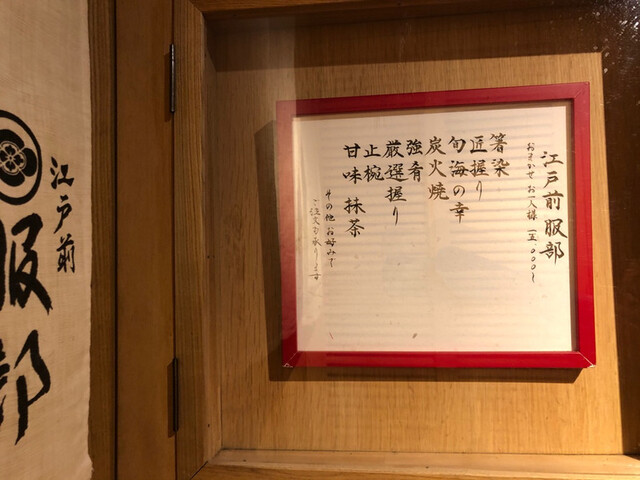 江戸前 服部
おまかせ お一人様 一五、〇〇〇〜
箸染
匠握り
旬海の幸
炭火焼
強肴
厳選握り
止椀
甘味 抹茶
その他 お好みで
ご注文も承ります
江戸前
服部